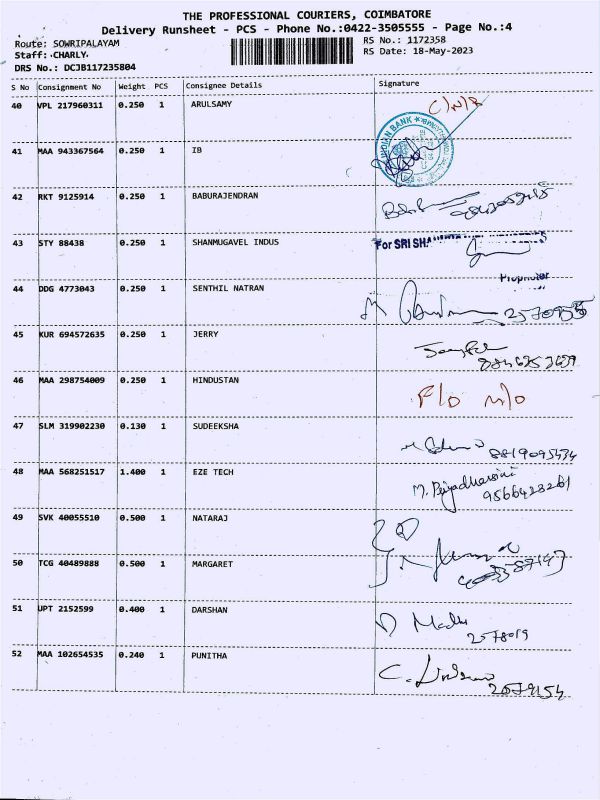 THE PROFESSIONAL COURIERS, COIMBATORE
Delivery Runsheet - PCS - Phone No.:0422-3505555 - Page No.:4
Route: SOWRIPALAYAM RS No.: 1172358
Staff: CHARLY. RS Date: 18-May-2023
DRS No.: DCJB117235804
S No Consignment No Weight PCS Consignee Details Signature
40 VPL 217960311 0.250 1 ARULSAMY
INDIAN BANK
41 MAA 943367564 0.250 1 IB
42 RKT 9125914 0.250 1 BABURAJENDRAN
43 STY 88438 0.250 1 SHANMUGAVEL INDUS For SRI
Proprietor
44 DDG 4773043 0.250 1 SENTHIL NATRAN
45 KUR 694572635 0.250 1 JERRY
46 MAA 298754009 0.250 1 HINDUSTAN
47 SLM 319902230 0.130 1 SUDEEKSHA
8819095434
48 MAA 568251517 1.400 1 EZE TECH M. Priyadharsini
9566428261
49 SVK 40055510 0.500 1 NATARAJ
50 TCG 40489888 0.500 1 MARGARET
51 UPT 2152599 0.400 1 DARSHAN
2578019
52 MAA 102654535 0.240 1 PUNITHA
2579154